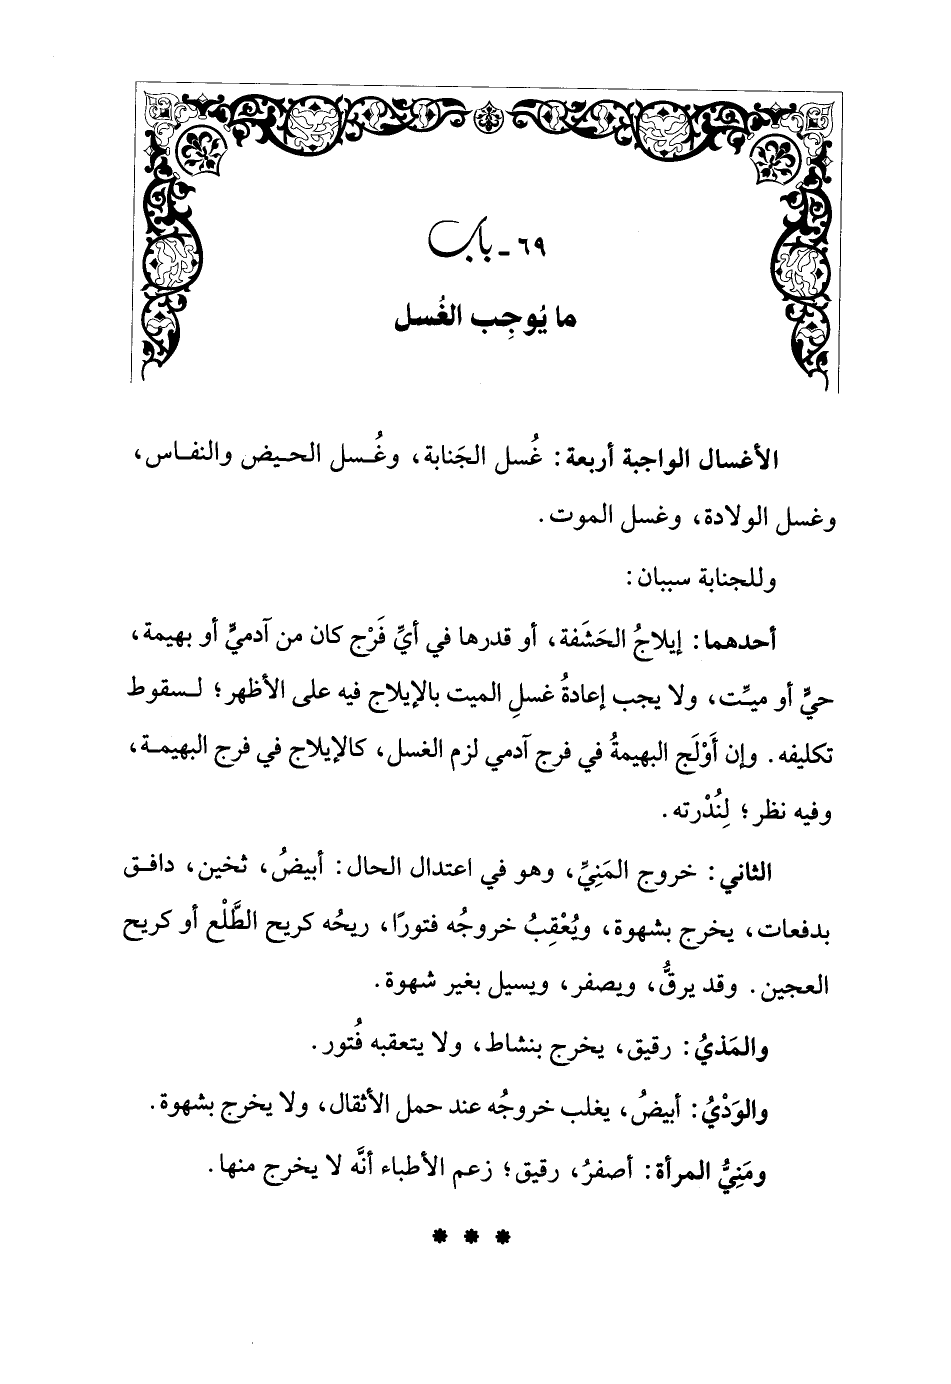 ٦٩ - باب
ما يُوجِب الغُسل
الأغسال الواجبة أربعة: غُسل الجَنابة، وغُسل الحيض والنفاس،
وغسل الولادة، وغسل الموت.
وللجنابة سببان:
أحدهما: إيلاجُ الحَشَفة، أو قدرها في أيِّ فَرْج كان من آدميٍّ أو بهيمة،
حيٍّ أو ميِّت، ولا يجب إعادةُ غسلِ الميت بالإيلاج فيه على الأظهر؛ لسقوط
تكليفه. وإن أَوْلَج البهيمةُ في فرج آدمي لزم الغسل، كالإيلاج في فرج البهيمة،
وفيه نظر؛ لِنُدْرته.
الثاني: خروج المَنِيِّ، وهو في اعتدال الحال: أبيضُ، ثخين، دافق
بدفعات، يخرج بشهوة، ويُعْقِبُ خروجُه فتورًا، ريحُه كريح الطَّلْع أو كريح
العجين. وقد يرقُّ، ويصفر، ويسيل بغير شهوة.
والمَذيُ: رقيق، يخرج بنشاط، ولا يتعقبه فُتور.
والوَدْيُ: أبيضُ، يغلب خروجُه عند حمل الأثقال، ولا يخرج بشهوة.
ومَنِيُّ المرأة: أصفرُ، رقيق؛ زعم الأطباء أنَّه لا يخرج منها.
* * *